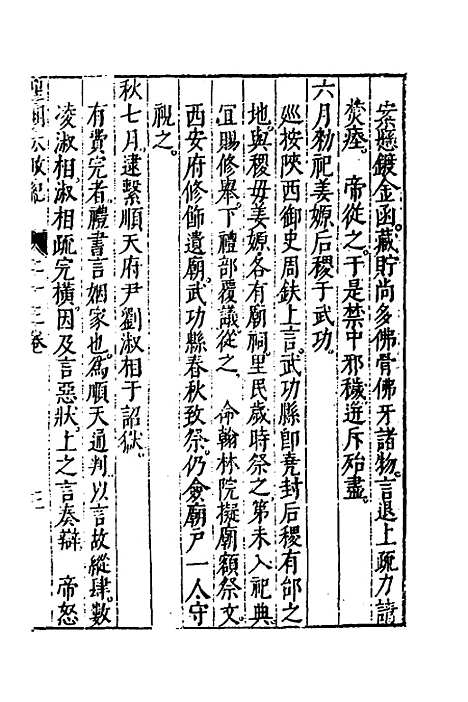 案懸鍍金函藏貯尚多佛骨佛牙諸物言退上疏力請
焚瘞　帝從之于是禁中邪穢迸斥殆盡
六月勑祀姜嫄后稷于武功
廵按陜西御史周鈇上言武功縣卽堯封后稷有邰之
地與稷毋姜嫄各有廟祠里民歲時祭之第未入祀典
宜賜修舉下禮部覆議從之　命翰林院擬廟額祭文
西安府修飾遺廟武功縣春秋致祭仍僉廟戸一人守
視之
秋七月逮繫順天府尹劉淑相于詔獄
有費完者禮書言姻家也爲順天通判以言故縱肆數
凌淑相淑相疏完橫因及言惡狀上之言奏辯　帝怒
皇明大政紀　二十三卷　三